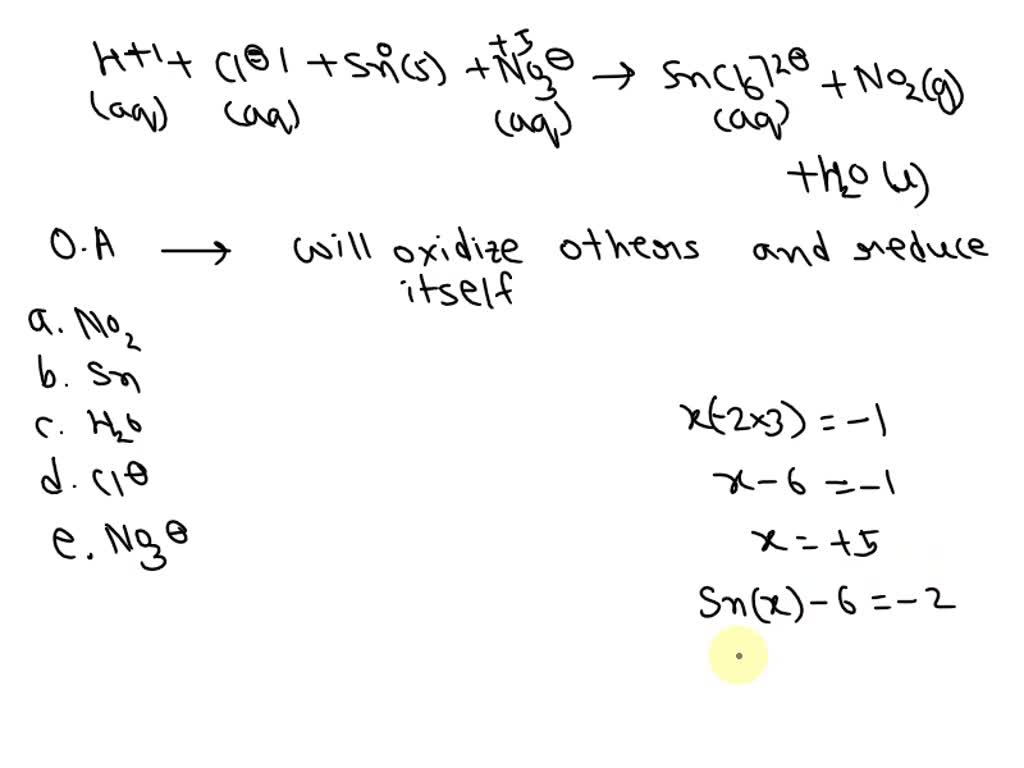 H+1 + Cl⊖1 + Sn⁰(s) + N⁺⁵O₃⊖ → SnCl₆]²⊖ + NO₂(g)
(aq) (aq) (aq) (aq)
+ H₂O (l)
O.A → will oxidize others and reduce
itself
a. NO₂
b. Sn
c. H₂O
d. Cl⊖
e. NO₃⊖
x(-2×3) = -1
x - 6 = -1
x = +5
Sn(x) - 6 = -2